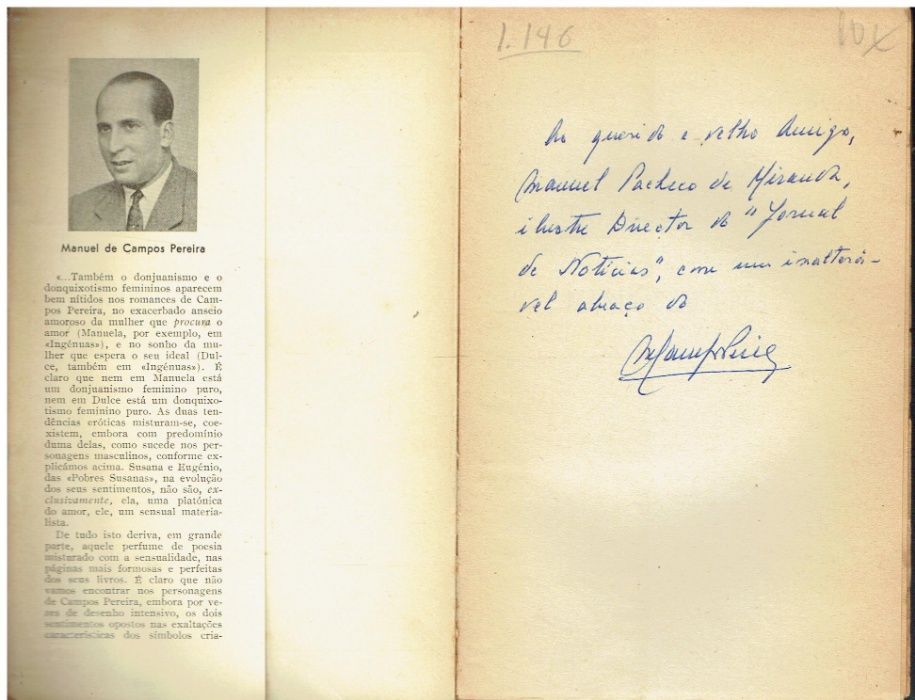 Manuel de Campos Pereira
«...Também o donjuanismo e o
donquixotismo femininos aparecem
bem nítidos nos romances de Cam-
pos Pereira, no exacerbado anseio
amoroso da mulher que procura o
amor (Manuela, por exemplo, em
«Ingénuas»), e no sonho da mu-
lher que espera o seu ideal (Dul-
ce, também em «Ingénuas»). É
claro que nem em Manuela está
um donjuanismo feminino puro,
nem em Dulce está um donquixo-
tismo feminino puro. As duas ten-
dências eróticas misturam-se, coe-
xistem, embora com predomínio
duma delas, como sucede nos per-
sonagens masculinos, conforme ex-
plicámos acima. Susana e Eugénio,
das «Pobres Susanas», na evolução
dos seus sentimentos, não são, ex-
clusivamente, ela, uma platónica
do amor, ele, um sensual materia-
lista.
De tudo isto deriva, em grande
parte, aquele perfume de poesia
misturado com a sensualidade, nas
páginas mais formosas e perfeitas
dos seus livros. É claro que não
vamos encontrar nos personagens
de Campos Pereira, embora por ve-
zes de desenho intensivo, os dois
sentimentos opostos nas exaltações
características dos símbolos cria-
1.146
Ao querido e velho Amigo,
Manuel Pacheco de Miranda,
ilustre Director do "Jornal
de Notícias", com um inalterá-
vel abraço do